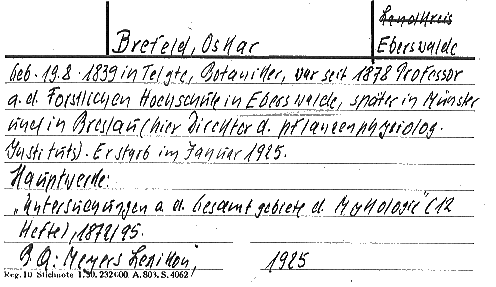 Landkreis
Brefeld, Oskar Eberswalde
geb. 19.8.1839 in Telgte, Botaniker, war seit 1878 Professor
a.d. Forstlichen Hochschule in Eberswalde, später in Münster
und in Breslau (hier Direktor d. pflanzenphysiolog.
Instituts). Er starb im Januar 1925.
Hauptwerke:
„Untersuchungen a. d. Gesamtgebiete d. Mykologie" (12
Hefte), 1872/95.
Meyers Lexikon, 1925
Reg. 10 Stichnote 1. 50. 232600. A. 803. S. 4062